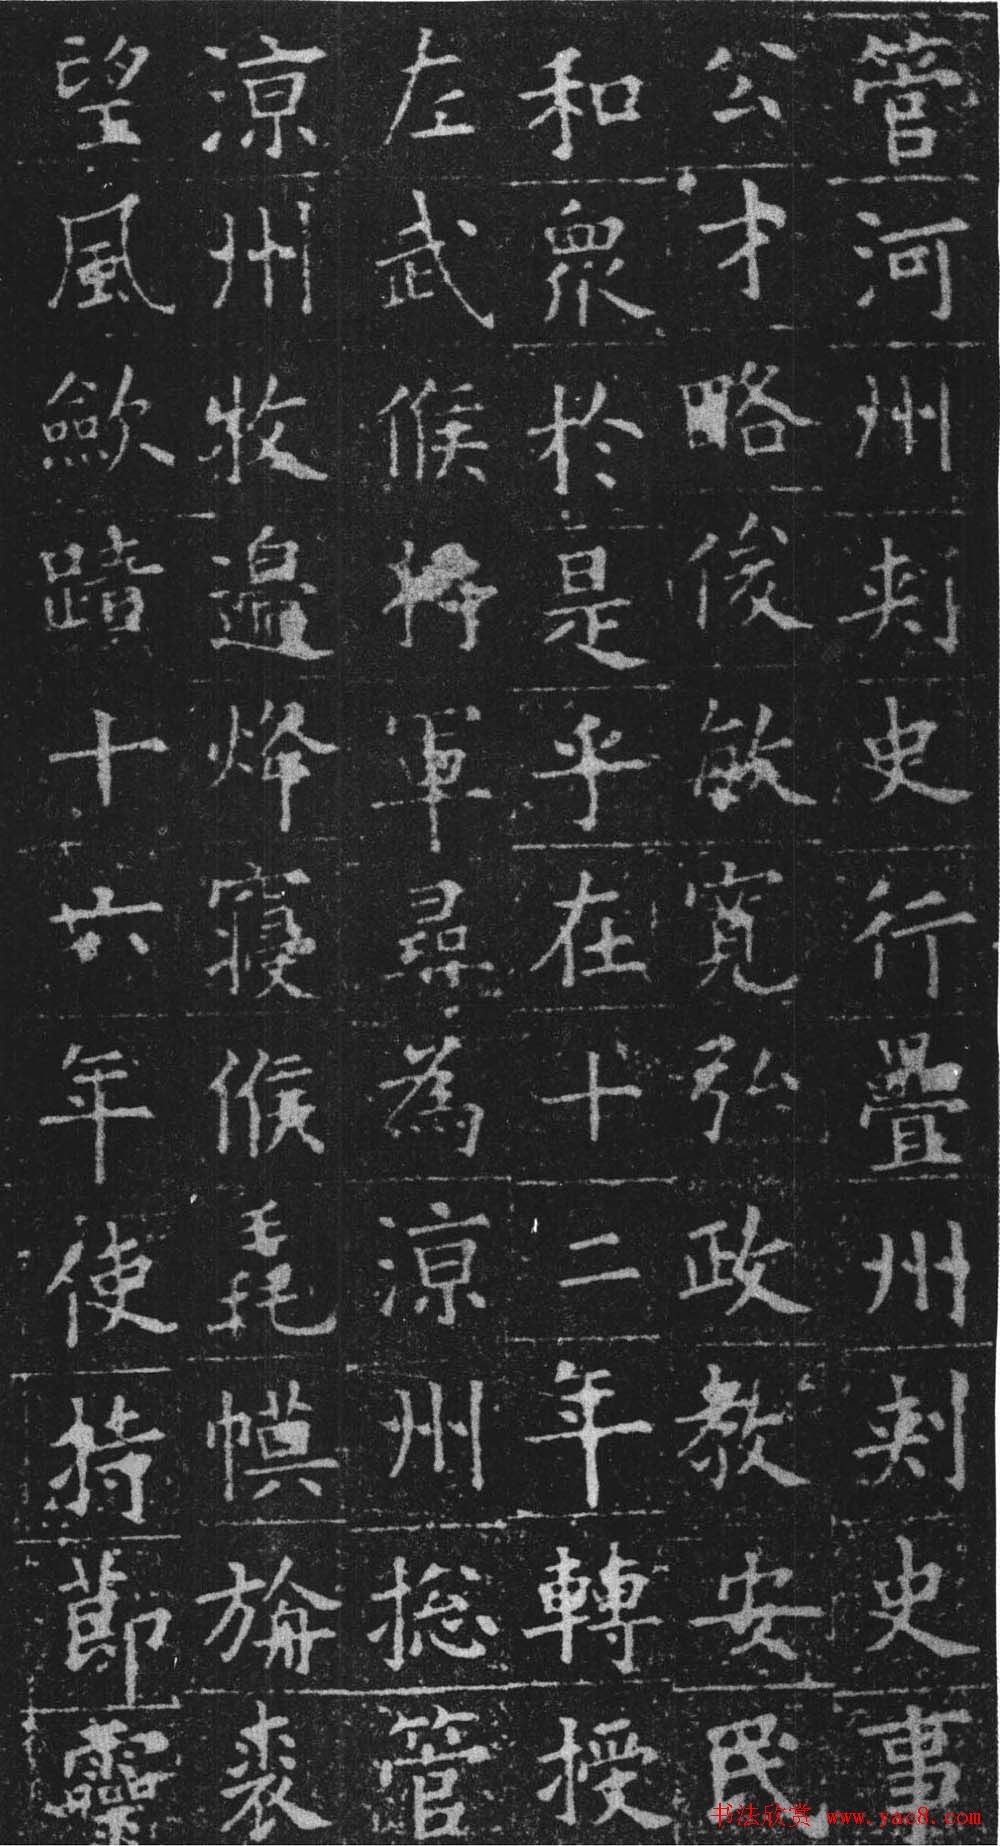 管河州刾史行疊州刾史事
公才略俊敏寬弘政教安民
和衆於是乎在十二年轉授
左武候將軍尋為涼州揔管
涼州牧邉烽寢候毳幙旃裘
望風歛蹟十六年使持節靈
书法欣赏 www.yac8.com